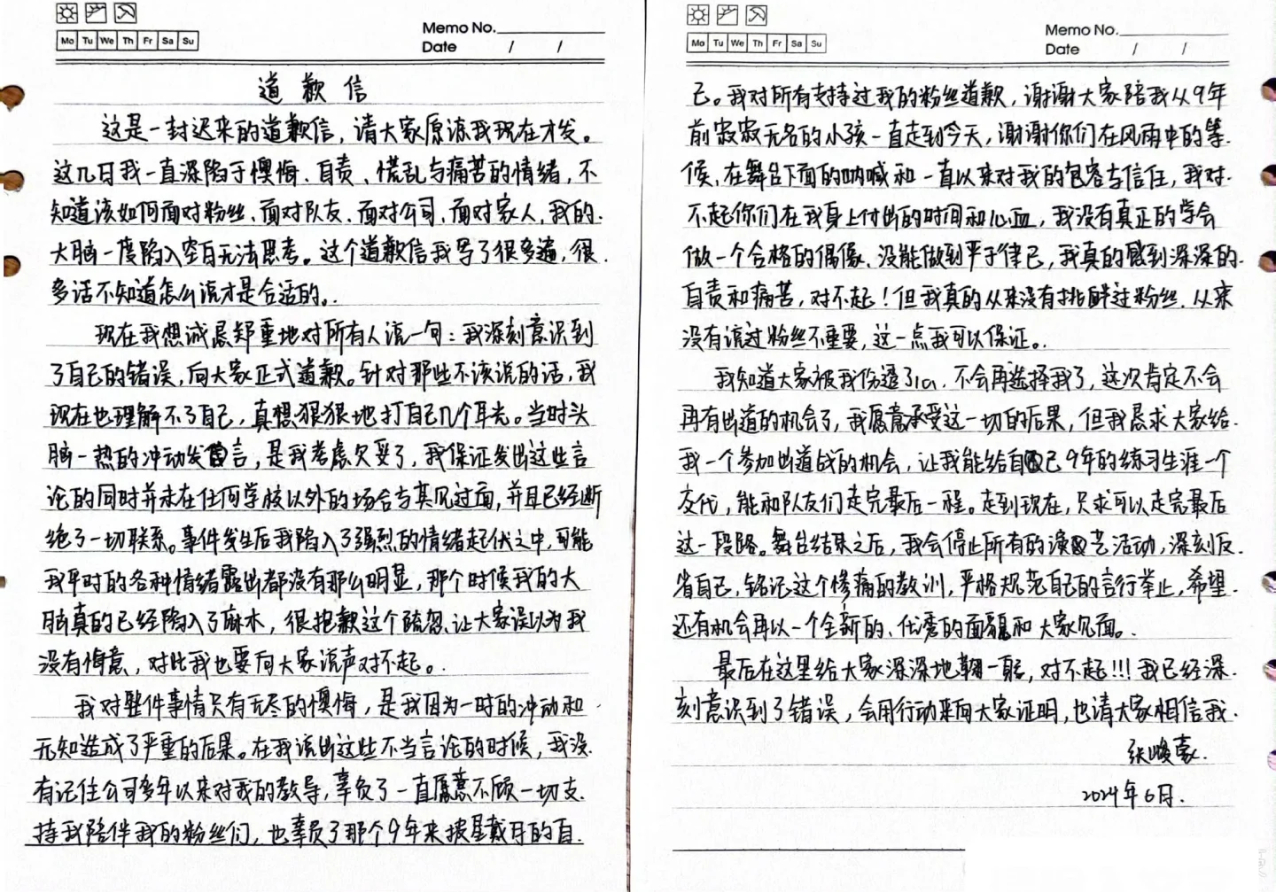 Mo Tu We Th Fr Sa Su
Memo No.
Date / /
道歉信
这是一封迟来的道歉信，请大家原谅我现在才发。
这几日我一直深陷于懊悔、自责、慌乱与痛苦的情绪，不
知道该如何面对粉丝、面对队友、面对公司、面对家人，我的
大脑一度陷入空白无法思考。这个道歉信我写了很多遍，很
多话不知道怎么说才是合适的。
现在我想诚恳郑重地对所有人说一句：我深刻意识到
了自己的错误，向大家正式道歉。针对那些不该说的话，我
现在也理解不了自己，真想狠狠地打自己几个耳光。当时头
脑一热的冲动发言，是我考虑欠妥了，我保证发出这些言
论的同时并未在任何学校以外的场合与其见过面，并且已经断
绝了一切联系。事件发生后我陷入了强烈的情绪起伏之中，可能
我平时的各种情绪露出都没有那么明显，那个时候我的大
脑真的已经陷入了麻木，很抱歉这个疏忽，让大家误以为我
没有悔意，对此我也要向大家说声对不起。
我对整件事情只有无尽的懊悔，是我因为一时的冲动和
无知造成了严重的后果。在我说出这些不当言论的时候，我没
有记住公司多年以来对我的教导，辜负了一直愿意不顾一切支
持我陪伴我的粉丝们，也辜负了那个9年来披星戴月的自
Mo Tu We Th Fr Sa Su
Memo No.
Date / /
己。我对所有支持过我的粉丝道歉，谢谢大家陪我从9年
前寂寂无名的小孩一直走到今天，谢谢你们在风雨中的等
候、在舞台下面的呐喊和一直以来对我的包容与信任，我对
不起你们在我身上付出的时间和心血，我没有真正的学会
做一个合格的偶像、没能做到严于律己，我真的感到深深的
自责和痛苦，对不起！但我真的从来没有挑衅过粉丝、从来
没有说过粉丝不重要，这一点我可以保证。
我知道大家被我伤透了心，不会再选择我了，这次肯定不会
再有出道的机会了，我愿意承受这一切的后果，但我恳求大家给
我一个参加出道战的机会，让我能给自己9年的练习生涯一个
交代，能和队友们走完最后一程。走到现在，只求可以走完最后
这一段路。舞台结束之后，我会停止所有的演艺活动，深刻反
省自己，铭记这个惨痛的教训，严格规范自己的言行举止，希望
还有机会再以一个全新的、优秀的面貌和大家见面。
最后在这里给大家深深地鞠一躬，对不起!!!我已经深
刻意识到了错误，会用行动来向大家证明，也请大家相信我。
张峻豪
2024年6月.